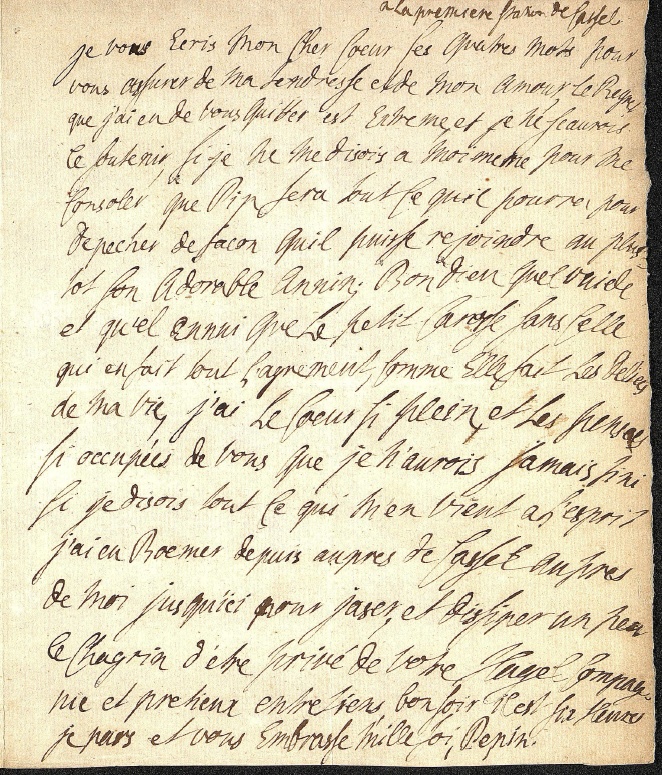 a La premiere station de Cassel
je vous Ecris Mon Cher Coeur Ces quatres mots pour
vous assurer de ma tendresse et de mon amour Le Regret
que j'ai eu de vous quitter est Extreme, et je ne scaurois
le soutenir, si je ne me disois a moi meme pour me
consoler, que Pip fera tout ce qu'il pourra pour
depecher de facon qu'il puisse rejoindre au plus
tot son Adorable Annin; Bon Dieu quel vuide
et qu'el ennui que Le petit Carosse sans Celle
qui en fait tout L'agrement, Comme Elle fait Les Delices
de ma vie, j'ai Le Coeur si plein, et Les pensees
si occupées de vous que je n'aurois jamais fini
si je disois tout Ce qui m'en vient a L'esprit
j'ai eu Boemer depuis aupres de Cassel aupres
de moi jusqu'ici pour jaser, et dissiper un peu
le Chagrin d'etre privé de votre Compag
nie et pretieux entretiens bonsoir il est six heures
je pars et vous Embrasse mille foi, Pepin.